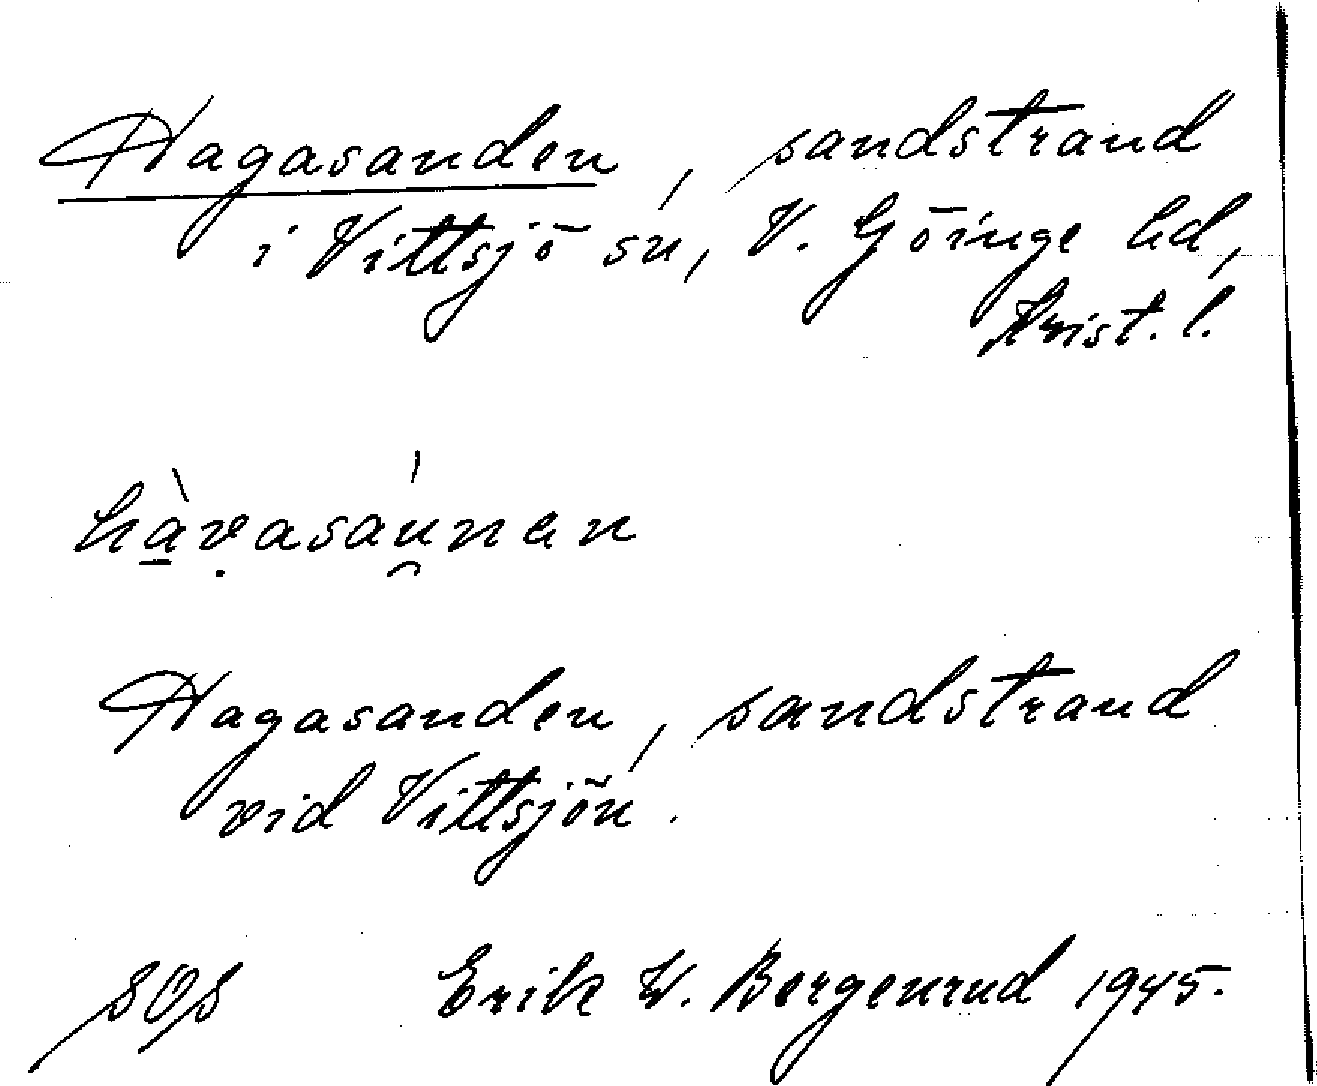 Hagasanden, sandstrand
i Vittsjö sn, V. Göinge hd,
Krist. l.
hà̱ṿasáu̯nan
Hagasanden, sandstrand
vid Vittsjön.
SOS Erik W. Bergenrud 1945.